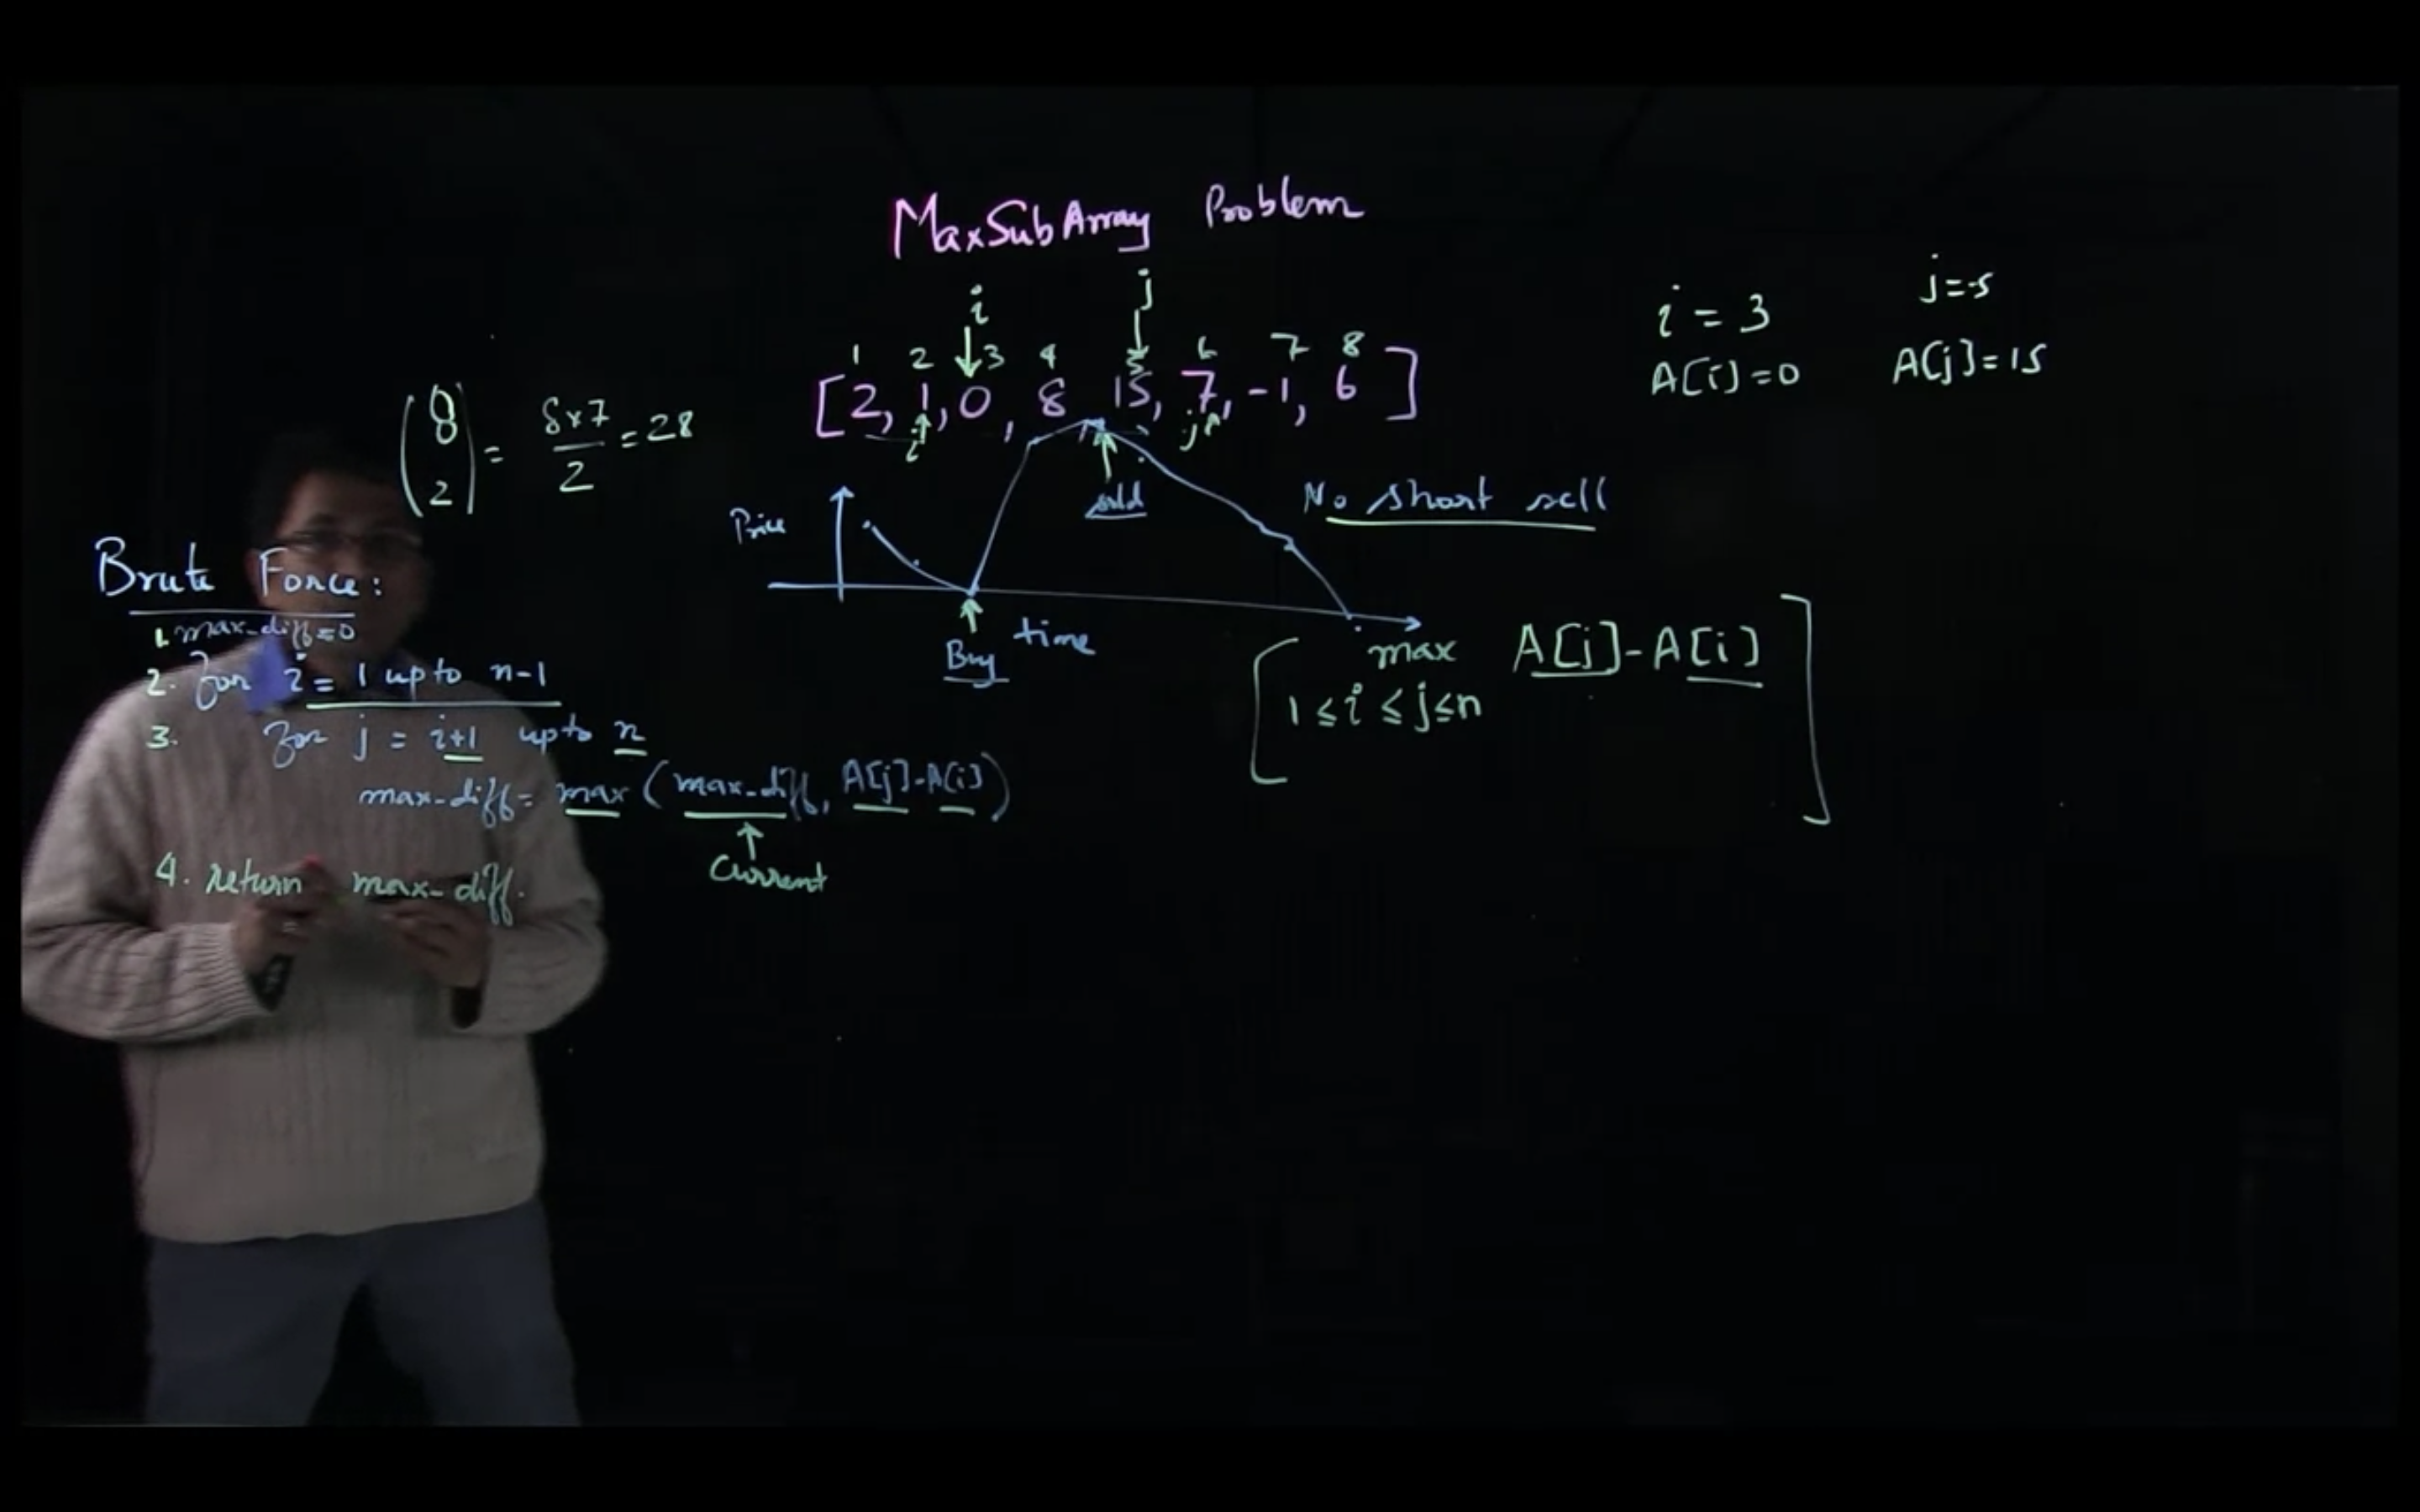 MaxSubArray Problem
i j
1 2 3 4 5 6 7 8
[2, 1, 0, 8 15, 7, -1, 6]
i j
i = 3 j=5
A[i]=0 A[j]=15
(8 2) = 8x7/2 = 28
Price
sold
No short sell
Buy
time
max A[j]-A[i]
1≤i≤j≤n
Brute Force:
1. max-diff=0
2. for i = 1 upto n-1
3. for j = i+1 upto n
max-diff= max (max-diff, A[j]-A[i])
Current
4. return max-diff.